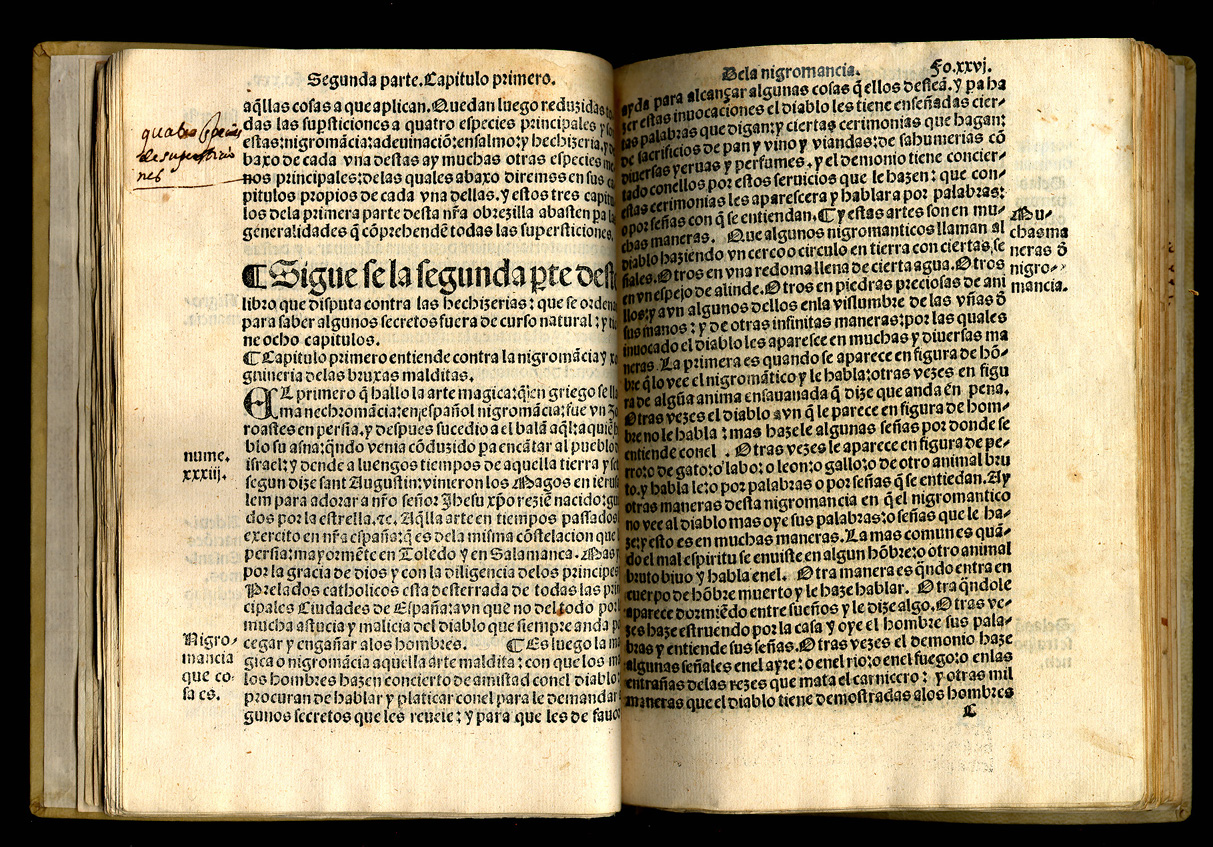 Segunda parte. Capitulo primero.
aq̃llas cosas a que aplican. Quedan luego reduzidas
das las supsticiones a quatro especies principales y
estas: nigromãcia: adeuinaciõ: ensalmo: y hechizeria. y
baxo de cada vna destas ay muchas otras especies me
nos principales: delas quales abaxo diremos en sus ca
pitulos propios de cada vna dellas. y estos tres capitu
los dela primera parte desta nr̃a obrezilla abasten pa la
generalidades q̃ cõprehendẽ todas las supersticiones.
quatro species
de supersticio
nes
¶ Sigue se la segunda ꝑte deste
libro que disputa contra las hechizerias: que se ordena
para saber algunos secretos fuera de curso natural: y tie
ne ocho capitulos.
¶ Capitulo primero entiende contra la nigromãcia y xo
guineria delas bruxas malditas.
EL primero q̃ hallo la arte magica: q̃ en griego se lla
ma nechromãcia: en español nigromãcia: fue vn Zo
roastes en persia. y despues sucedio a el balã aq̃l: a quiẽ
blo su asna: q̃ndo venia cõduzido pa encãtar al pueblo
israel: y dende a luengos tiempos de aquella tierra y
segun dize sant Augustin: vinieron los Magos en ierusa
lem para adorar a nr̃o señor Jhesu xp̃o reziẽ nacido: gui
dos por la estrella. ⁊c. Aq̃lla arte en tiempos passados
exercito en nr̃a españa: q̃ es dela misma cõstelacion que
persia: mayormẽte en Toledo y en Salamanca. Mas
por la gracia de dios y con la diligencia delos principes
Prelados catholicos esta desterrada de todas las prin
cipales Ciudades de España: avn que no del todo por
mucha astucia y malicia del diablo que siempre anda
cegar y engañar alos hombres. ¶ Es luego la ma
gica o nigromãcia aquella arte maldita: con que los ma
los hombres hazen concierto de amistad conel diablo:
procuran de hablar y platicar conel para le demandar
gunos secretos que les reuele: y para que les de fauor
nume.
xxxiij.
Nigro-
mancia
que co-
sa es.
Dela nigromancia. Fo. xxvj.
ayda para alcançar algunas cosas q̃ ellos desseã. y pa ha
zer estas inuocaciones el diablo les tiene enseñadas cier-
tas palabras que digan: y ciertas cerimonias que hagan:
de sacrificios de pan y vino y viandas: de sahumerias cõ
diuersas yeruas y perfumes. y el demonio tiene concier-
tado conellos por estos seruicios que le hazen: que con-
estas cerimonias les aparescera y hablara por palabras:
o por señas con q̃ se entiendan. ¶ y estas artes son en mu-
chas maneras. Que algunos nigromanticos llaman al
diablo haziendo vn cerco o circulo en tierra con ciertas se
ñales. Otros en vna redoma llena de cierta agua. Otros
en vn espejo de alinde. Otros en piedras preciosas de ani
llos: y avn algunos dellos enla vislumbre de las vñas ð
sus manos: y de otras infinitas maneras: por las quales
inuocado el diablo les aparesce en muchas y diuersas ma
neras. La primera es quando se aparece en figura de hõ-
bre q̃ lo vee el nigromãtico y le habla: otras vezes en figu
ra de algũa anima ensauanada q̃ dize que anda en pena.
Otras vezes el diablo avn q̃ le parece en figura de hom-
bre no le habla: mas hazele algunas señas por donde se
entiende conel. Otras vezes le aparece en figura de pe-
rro: o de gato: o labo: o leon: o gallo: o de otro animal bru
to. y habla le: o por palabras o por señas q̃ se entiedan. Ay
otras maneras desta nigromancia en q̃ el nigromantico
no vee al diablo mas oye sus palabras: o señas que le ha-
ze: y esto es en muchas maneras. La mas comun es quã-
do el mal espiritu se enuiste en algun hõbre: o otro animal
bruto biuo y habla enel. Otra manera es q̃ndo entra en
cuerpo de hõbre muerto y le haze hablar. Otra q̃ndole
aparece dormiẽdo entre sueños y le dize algo. Otras ve-
zes haze estruendo por la casa y oye el hombre sus pala-
bras y entiende sus señas. Otras vezes el demonio haze
algunas señales enel ayre: o enel rio: o enel fuego: o enlas
entrañas delas rezes que mata el carnicero: y otras mil
maneras que el diablo tiene demostradas alos hombres
Mu-
chas ma
neras ð
nigro-
mancia.